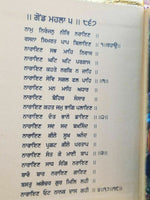 ॥ ਗੋਂਡ ਮਹਲਾ ੫ ॥ ੮੬੭
ਨਾਮੁ ਨਿਰੰਜਨੁ ਨੀਰਿ ਨਰਾਇਣ ॥
ਰਸਨਾ ਸਿਮਰਤ ਪਾਪ ਬਿਲਾਇਣ ॥੧॥ਰਹਾਉ॥
ਨਾਰਾਇਣ ਸਭ ਮਾਹਿ ਨਿਵਾਸ ॥
ਨਾਰਾਇਣ ਘਟਿ ਘਟਿ ਪਰਗਾਸ ॥
ਨਾਰਾਇਣ ਕਹਤੇ ਨਰਕਿ ਨ ਜਾਹਿ ॥
ਨਾਰਾਇਣ ਸੇਵਿ ਸਗਲ ਫਲ ਪਾਹਿ ॥੧॥
ਨਾਰਾਇਣ ਮਨ ਮਾਹਿ ਅਧਾਰ ॥
ਨਾਰਾਇਣ ਬੋਹਿਥ ਸੰਸਾਰ ॥
ਨਾਰਾਇਣ ਕਹਤ ਜਮੁ ਭਾਗਿ ਪਲਾਇਣ ॥
ਨਾਰਾਇਣ ਦੰਤ ਭਾਨੇ ਡਾਇਣ ॥੨॥
ਨਾਰਾਇਣ ਸਦ ਸਦ ਬਖਸਿੰਦ ॥
ਨਾਰਾਇਣ ਕੀਨੇ ਸੂਖ ਅਨੰਦ ॥
ਨਾਰਾਇਣ ਪ੍ਰਗਟ ਕੀਨੋ ਪਰਤਾਪ ॥
ਨਾਰਾਇਣ ਸੰਤ ਕੋ ਮਾਈ ਬਾਪ ॥੩॥
ਨਾਰਾਇਣ ਸਾਧਸੰਗਿ ਨਰਾਇਣ ॥
ਬਾਰੰ ਬਾਰ ਨਰਾਇਣ ਗਾਇਣ ॥
ਬਸਤੁ ਅਗੋਚਰ ਗੁਰ ਮਿਲਿ ਲਹੀ ॥
ਨਾਰਾਇਣ ਓਟ ਨਾਨਕ ਦਾਸ ਗਹੀ ॥੪॥੧੭॥੧੯॥